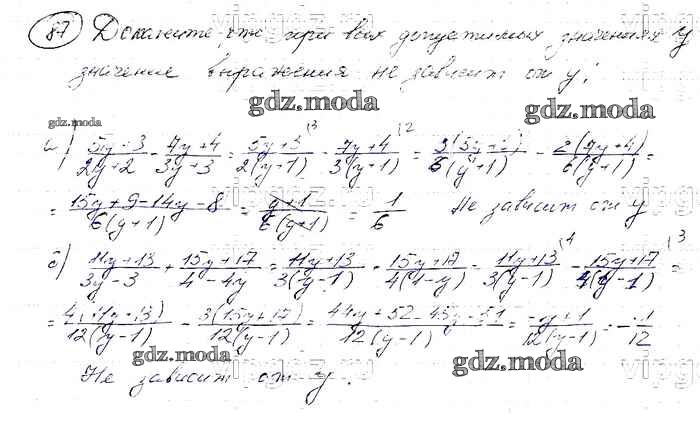 87) Докажите, что при всех допустимых значениях y
значение выражения не зависит от y:
gdz.moda gdz.moda
gdz.moda
а) (5y+3)/(2y+2) - (7y+4)/(3y+3) = (5y+3)/(2(y+1)) |3 - (7y+4)/(3(y+1)) |2 = 3(5y+3)/(6(y+1)) - 2(7y+4)/(6(y+1)) =
= (15y+9-14y-8)/(6(y+1)) = (y+1)/(6(y+1)) = 1/6 Не зависит от y
б) (11y+13)/(3y-3) + (15y+17)/(4-4y) = (11y+13)/(3(y-1)) + (15y+17)/(4(1-y)) = (11y+13)/(3(y-1)) |4 - (15y+17)/(4(y-1)) |3 =
= 4(11y+13)/(12(y-1)) - 3(15y+17)/(12(y-1)) = (44y+52-45y-51)/(12(y-1)) = (-y+1)/(12(y-1)) = -1/12
gdz.moda gdz.moda
Не зависит от y.